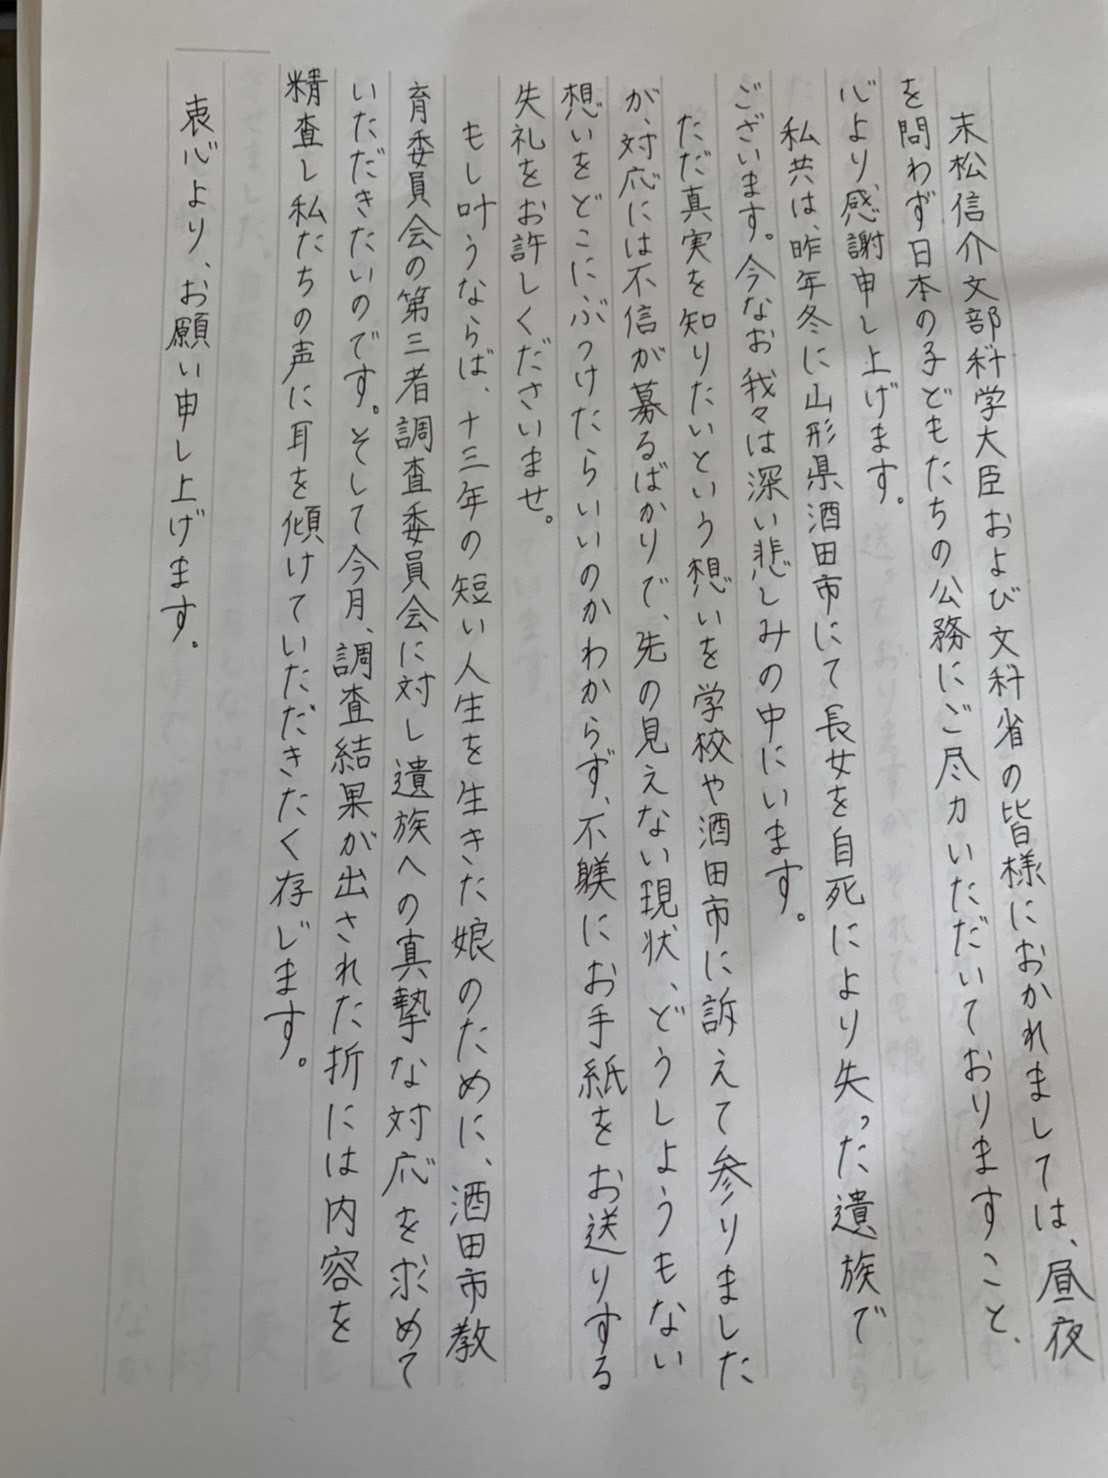 末松信介文部科学大臣および文科省の皆様におかれましては、昼夜
を問わず日本の子どもたちの公務にご尽力いただいておりますこと、
心より、感謝申し上げます。
私共は、昨年冬に山形県酒田市にて長女を自死により失った遺族で
ございます。今なお我々は深い悲しみの中にいます。
ただ真実を知りたいという想いを学校や酒田市に訴えて参りました
が、対応には不信が募るばかりで、先の見えない現状、どうしようもない
想いをどこにぶつけたらいいのかわからず、不躾にお手紙をお送りする
失礼をお許しくださいませ。
もし叶うならば、十三年の短い人生を生きた娘のために、酒田市教
育委員会の第三者調査委員会に対し遺族への真摯な対応を求めて
いただきたいのです。そして今月、調査結果が出された折には内容を
精査し私たちの声に耳を傾けていただきたく存じます。
衷心より、お願い申し上げます。